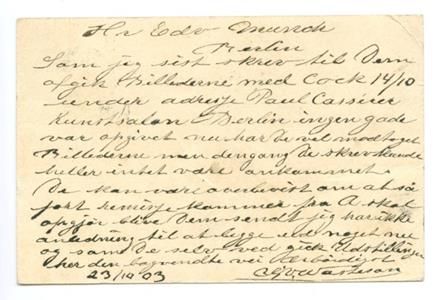 Hr Edv Munch
Berlin
Som jeg sist skrev til Dem
afgik Billederne med Cock 14/10
under adresse Paul Cassirer
Kunstsalon Berlin ingen gade
var opgivet nu har De vel modtaget
Billederne men dengang De skrev kunde
heller intet være ankommet
De kan være overbevist om at så
fort remisse kommer fra A skal
opgjør blive Dem sendt jeg har ikke
anledning til at lægge ud noget nu
og som De selv ved gik Udstillingen
her den bagvendte vei Ærbødigst
23/10 03